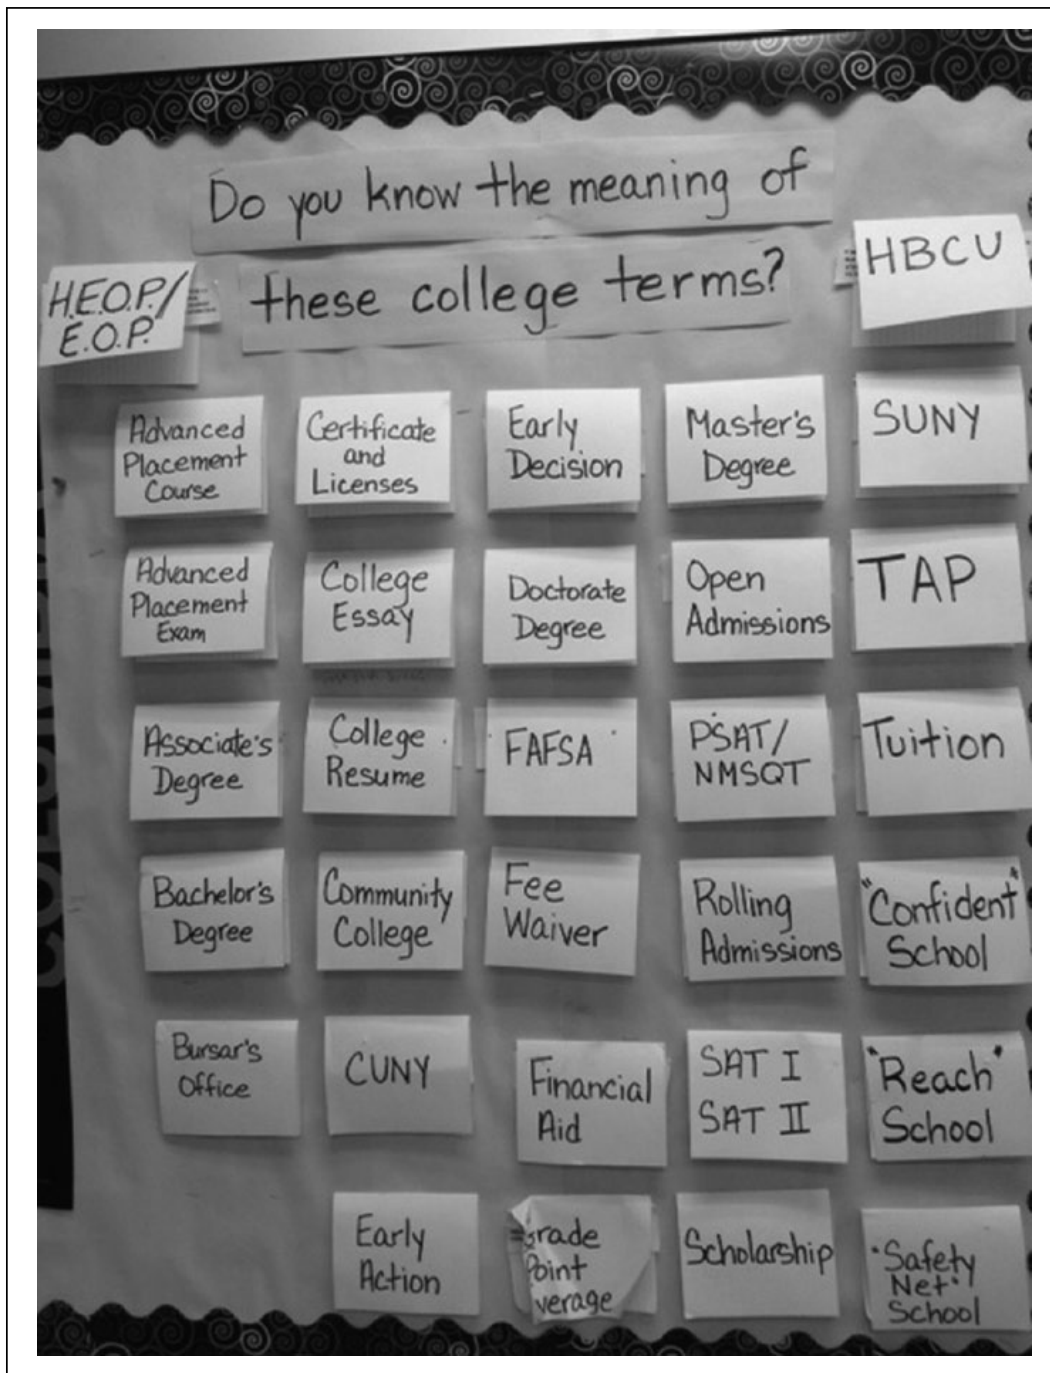 Do you know the meaning of
these college terms?
H.E.O.P./
E.O.P.
HBCU
Advanced
Placement
Course
Certificate
and
Licenses
Early
Decision
Master's
Degree
SUNY
Advanced
Placement
Exam
College
Essay
Doctorate
Degree
Open
Admissions
TAP
Associate's
Degree
College
Resume
FAFSA
PSAT/
NMSQT
Tuition
Bachelor's
Degree
Community
College
Fee
Waiver
Rolling
Admissions
"Confident"
School
Bursar's
Office
CUNY
Financial
Aid
SAT I
SAT II
"Reach"
School
Early
Action
grade
Point
verage
Scholarship
"Safety
Net"
School